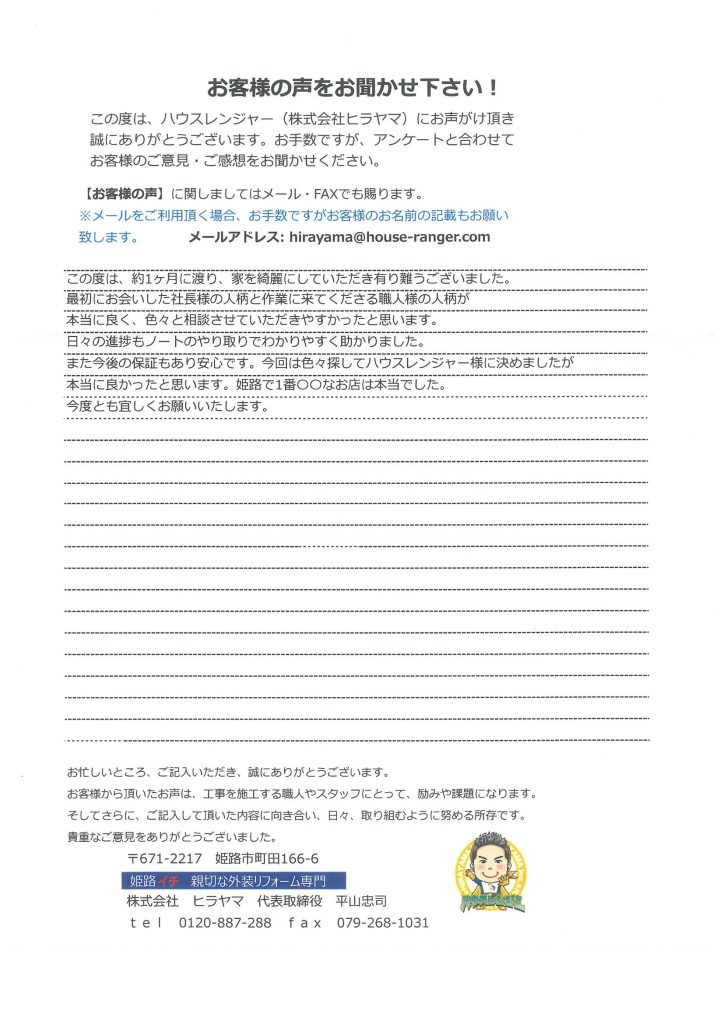 お客様の声をお聞かせ下さい！
この度は、ハウスレンジャー（株式会社ヒラヤマ）にお声がけ頂き
誠にありがとうございます。お手数ですが、アンケートと合わせて
お客様のご意見・ご感想をお聞かせください。
【お客様の声】に関しましてはメール・FAXでも賜ります。
※メールをご利用頂く場合、お手数ですがお客様のお名前の記載もお願い
致します。 メールアドレス: hirayama@house-ranger.com
この度は、約1ヶ月に渡り、家を綺麗にしていただき有り難うございました。
最初にお会いした社長様の人柄と作業に来てくださる職人様の人柄が
本当に良く、色々と相談させていただきやすかったと思います。
日々の進捗もノートのやり取りでわかりやすく助かりました。
また今後の保証もあり安心です。今回は色々探してハウスレンジャー様に決めましたが
本当に良かったと思います。姫路で1番〇〇なお店は本当でした。
今度とも宜しくお願いいたします。
お忙しいところ、ご記入いただき、誠にありがとうございます。
お客様から頂いたお声は、工事を施工する職人やスタッフにとって、励みや課題になります。
そしてさらに、ご記入して頂いた内容に向き合い、日々、取り組むように努める所存です。
貴重なご意見をありがとうございました。
〒671-2217 姫路市町田166-6
姫路イチ 親切な外装リフォーム専門
株式会社 ヒラヤマ 代表取締役 平山忠司
ｔｅｌ 0120-887-288 ｆａｘ 079-268-1031